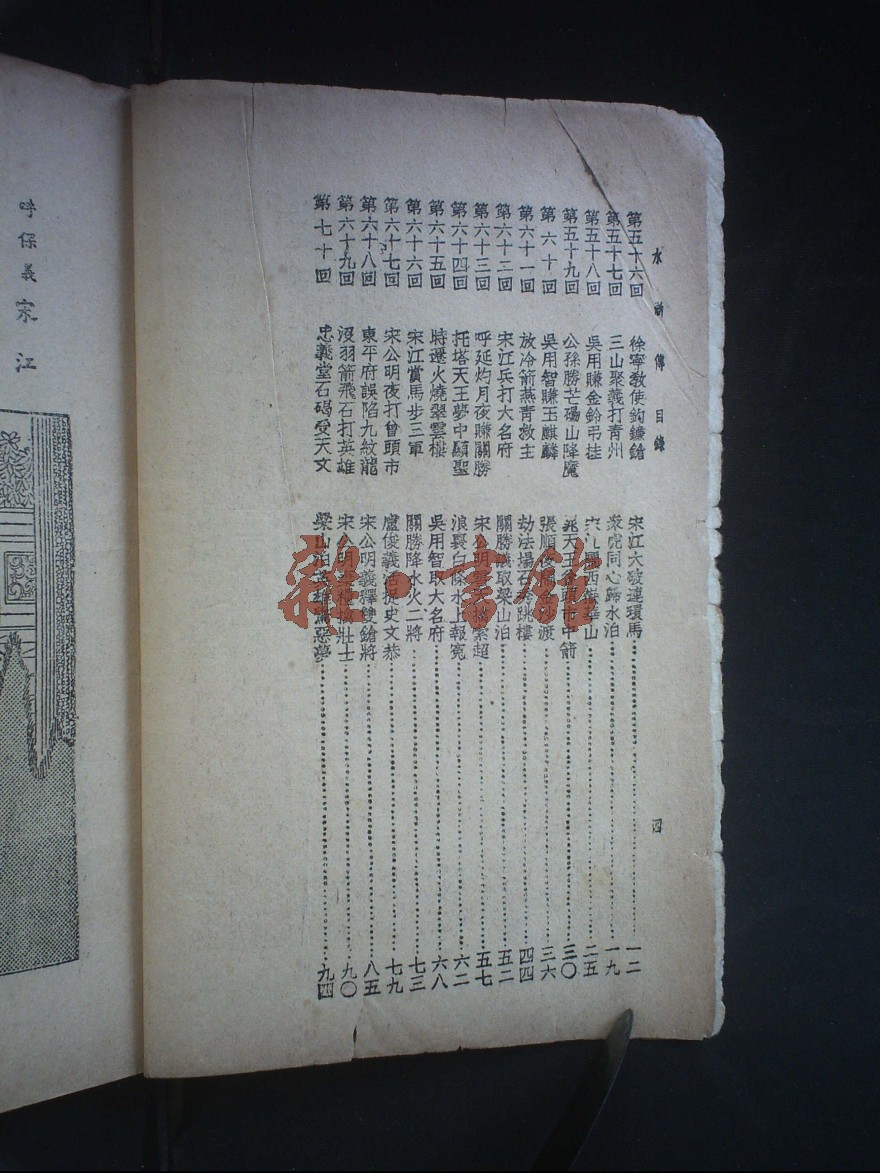 水滸傳目錄 四
第五十六回 徐寧教使鉤鐮鎗 宋江大破連環馬 一二
第五十七回 三山聚義打青州 眾虎同心歸水泊 一九
第五十八回 吳用賺金鈴弔挂 宋江鬧西嶽華山 二五
第五十九回 公孫勝芒碭山降魔 晁天王曾頭市中箭 三〇
第六十回 吳用智賺玉麒麟 張順夜鬧金沙渡 三六
第六十一回 放冷箭燕青救主 劫法場石秀跳樓 四四
第六十二回 宋江兵打大名府 關勝議取梁山泊 五二
第六十三回 呼延灼月夜賺關勝 宋公明雪天擒索超 五七
第六十四回 托塔天王夢中顯聖 浪裏白條水上報冤 六二
第六十五回 時遷火燒翠雲樓 吳用智取大名府 六八
第六十六回 宋江賞馬步三軍 關勝降水火二將 七三
第六十七回 宋公明夜打曾頭市 盧俊義活捉史文恭 七九
第六十八回 東平府誤陷九紋龍 宋公明義釋雙鎗將 八五
第六十九回 沒羽箭飛石打英雄 宋公明棄糧擒壯士 九〇
第七十回 忠義堂石碣受天文 梁山泊英雄驚惡夢 九四
呼保義宋江
雜·書館